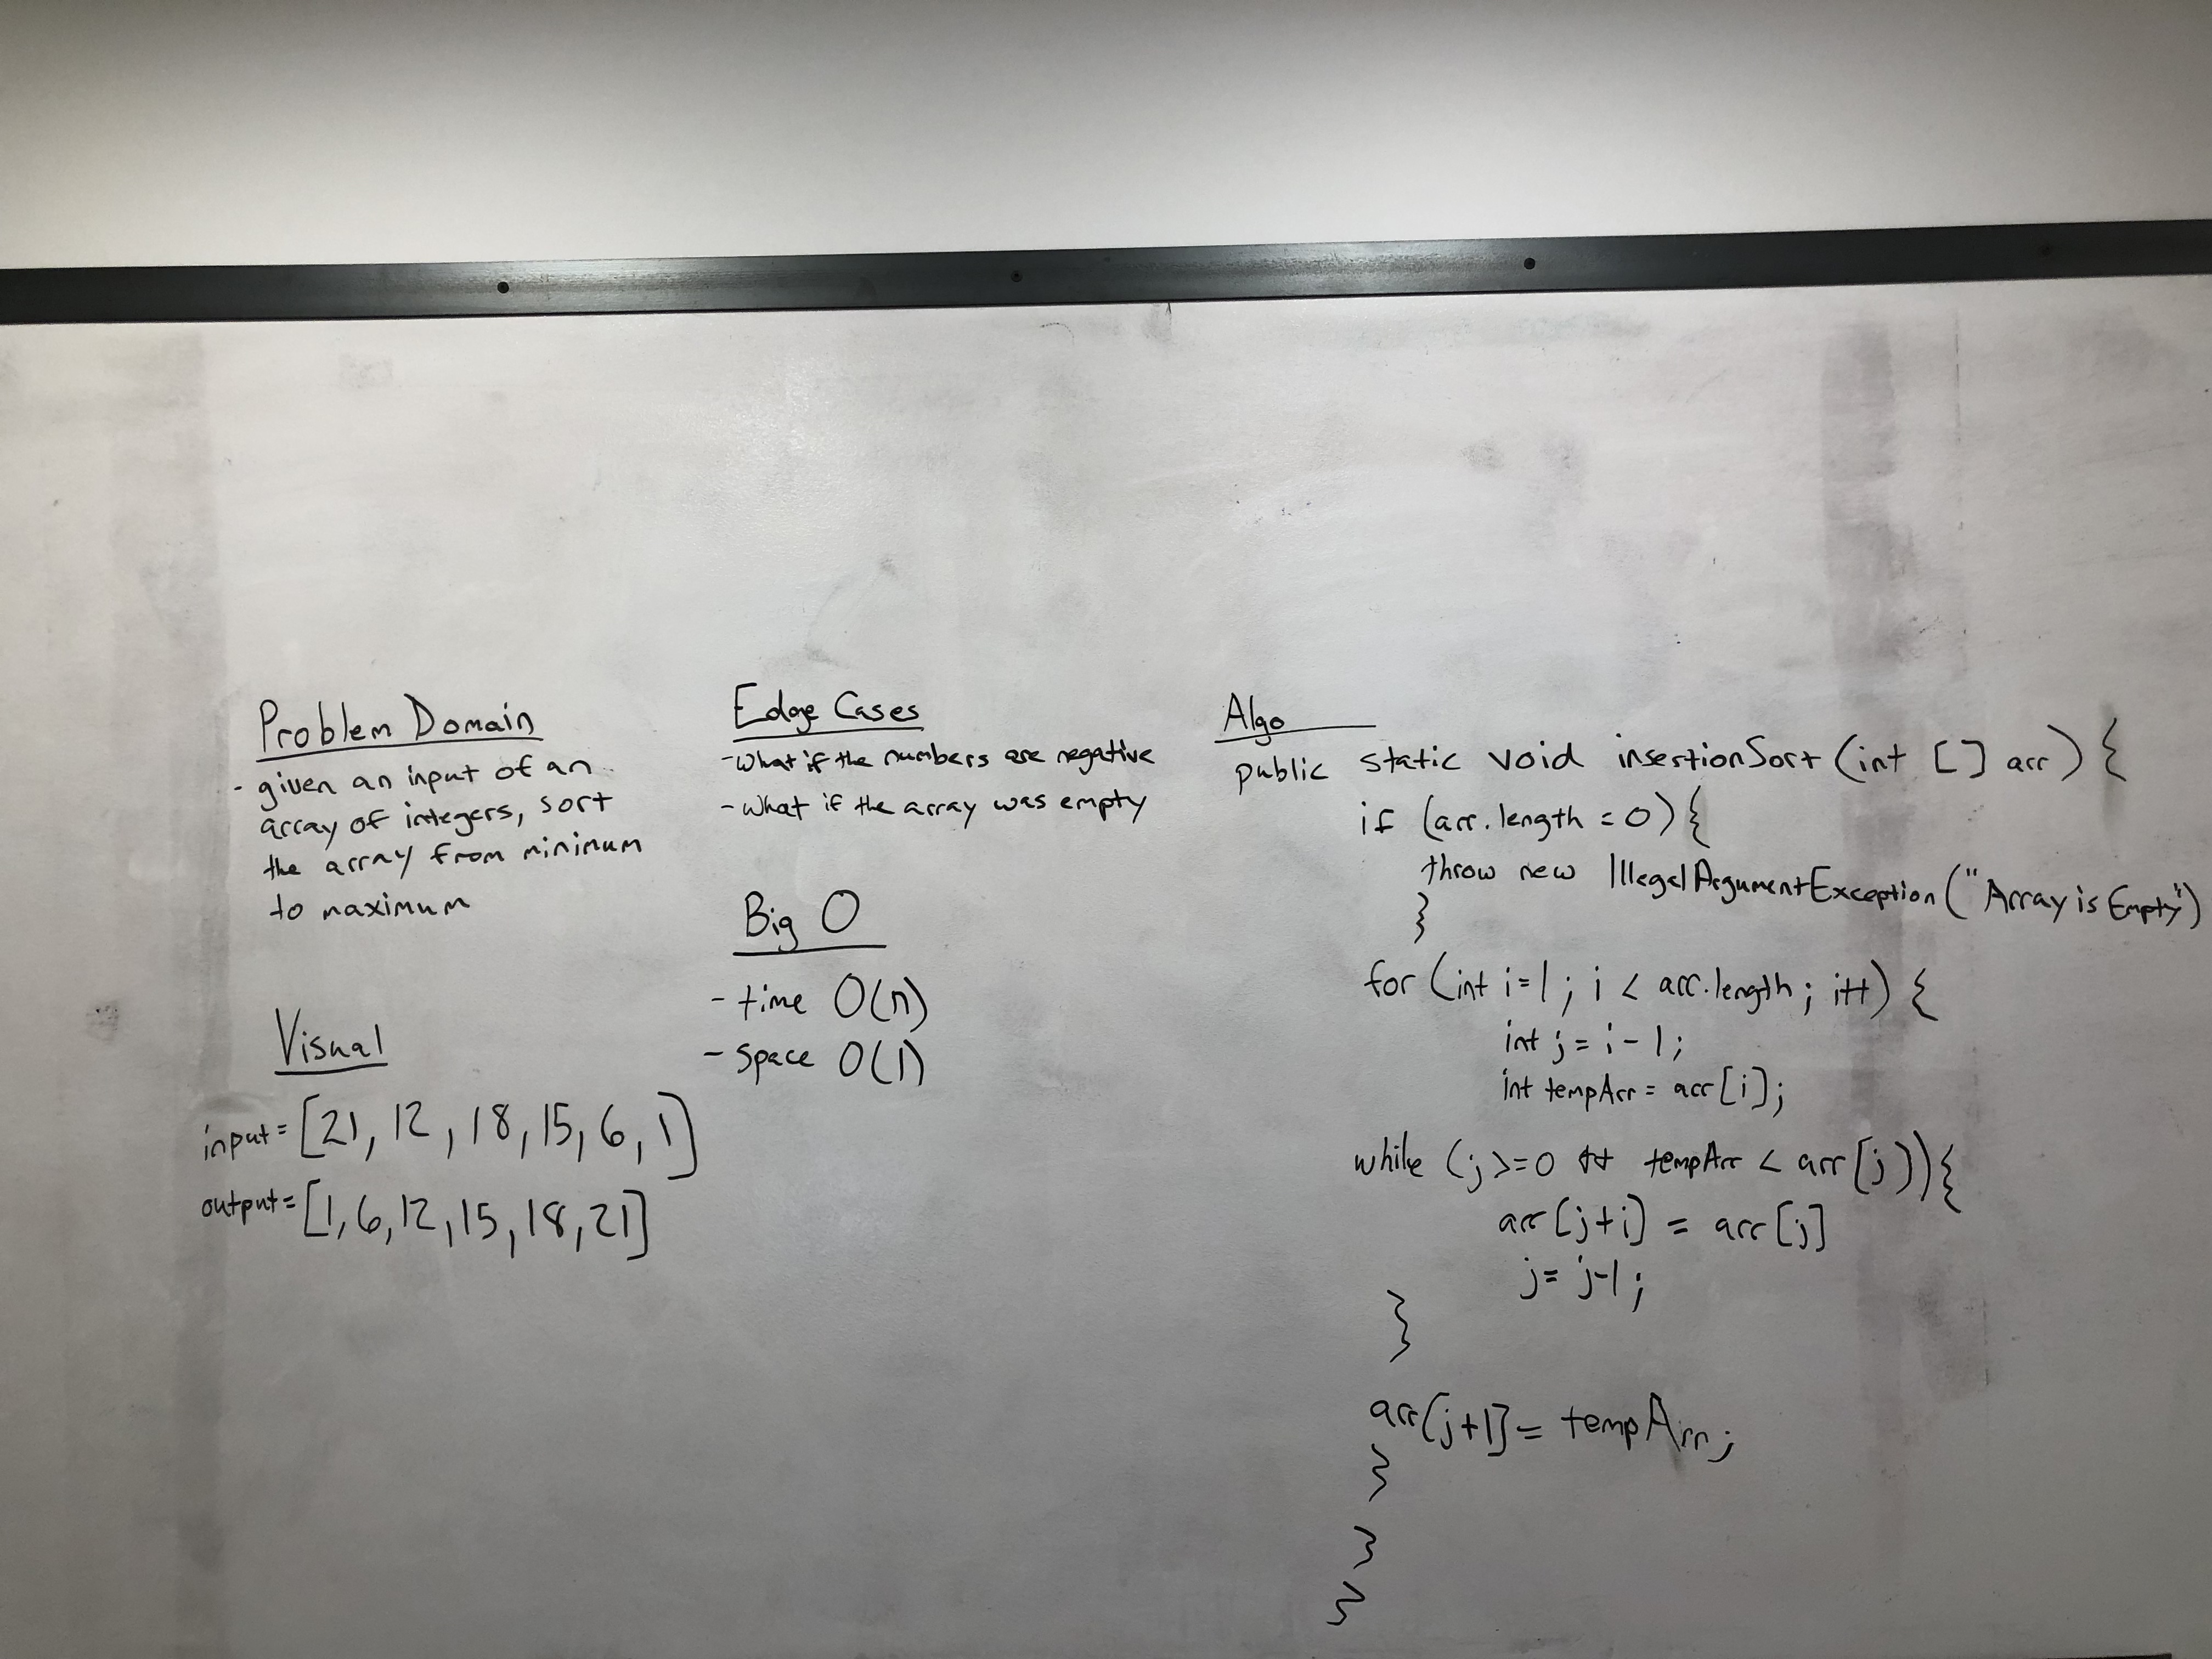 Problem Domain
- given an input of an
array of integers, sort
the array from minimum
to maximum
Visual
input = [21, 12, 18, 15, 6, 1]
output = [1, 6, 12, 15, 18, 21]
Edge Cases
- What if the numbers are negative
- What if the array was empty
Big O
- time O(n)
- space O(1)
Algo
public static void insertionSort (int [] arr) {
if (arr.length = 0) {
throw new IllegalArgumentException ("Array is Empty")
}
for (int i=1; i < arr.length; i++) {
int j = i - 1;
int tempArr = arr[i];
while (j >= 0 && tempArr < arr[j]) {
arr[j+i] = arr[j]
j = j-1;
}
arr[j+1] = tempArr;
}
}
}